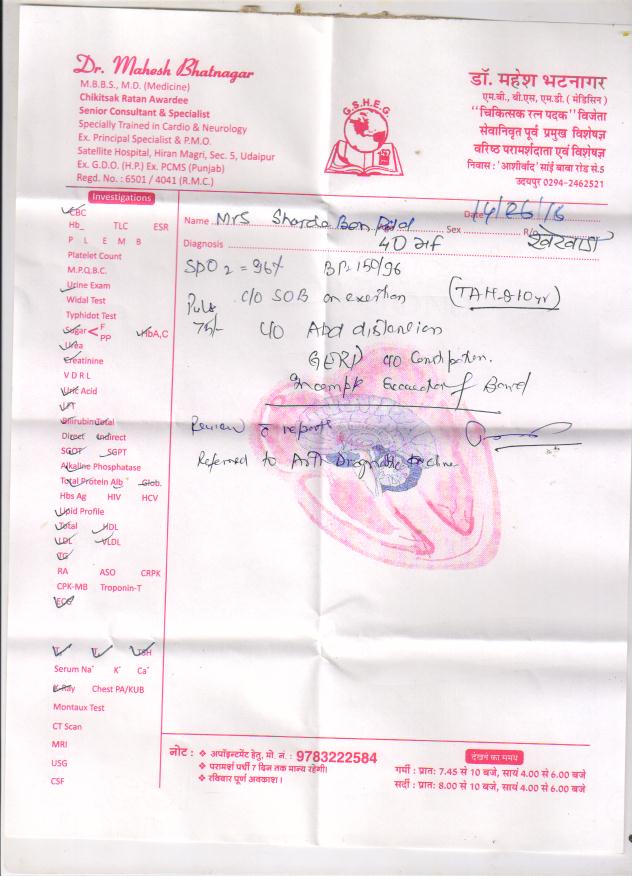 Dr. Mahesh Bhatnagar
M.B.B.S., M.D. (Medicine)
Chikitsak Ratan Awardee
Senior Consultant & Specialist
Specially Trained in Cardio & Neurology
Ex. Principal Specialist & P.M.O.
Satellite Hospital, Hiran Magri, Sec. 5, Udaipur
Ex. G.D.O. (H.P.) Ex. PCMS (Punjab)
Regd. No. : 6501 / 4041 (R.M.C.)
G.S.H.E.G.
डॉ. महेश भटनागर
एम.बी., बी.एस, एम.डी. ( मेडिसिन )
"चिकित्सक रत्न पदक" विजेता
सेवानिवृत पूर्व प्रमुख विशेषज्ञ
वरिष्ठ परामर्शदाता एवं विशेषज्ञ
निवास : 'आशीर्वाद' सांई बाबा रोड से.5
उदयपुर 0294-2462521
Investigations
CBC
Hb_ TLC ESR
P L E M B
Platelet Count
M.P.Q.B.C.
Urine Exam
Widal Test
Typhidot Test
Sugar < F
PP HbA,C
Urea
Creatinine
V D R L
Uric Acid
LFT
Bilirubin Total
Direct Indirect
SGOT SGPT
Alkaline Phosphatase
Total Protein Alb Glob.
Hbs Ag HIV HCV
Lipid Profile
Total HDL
LDL VLDL
TG
RA ASO CRPK
CPK-MB Troponin-T
ECG
TSH
Serum Na⁺ K⁺ Ca⁺
X-Ray Chest PA/KUB
Montaux Test
CT Scan
MRI
USG
CSF
Date
Name Mrs Sharda Ben
Sex R/o
Diagnosis 40
SPO2 = 96% BP = 150/96
c/o SOB on exertion
Pulse
c/o Abd distension
GERD c/o Constipation.
Incomplete Evacuation of Bowel
Review c̄ reports
Referred to Diagnostic
नोट : ❖ अपॉइन्टमेंट हेतु, मो. नं. : 9783222584
❖ परामर्श पर्ची 7 दिन तक मान्य रहेगी।
❖ रविवार पूर्ण अवकाश।
देखने का समय
गर्मी : प्रात: 7.45 से 10 बजे, सायं 4.00 से 6.00 बजे
सर्दी : प्रात: 8.00 से 10 बजे, सायं 4.00 से 6.00 बजे